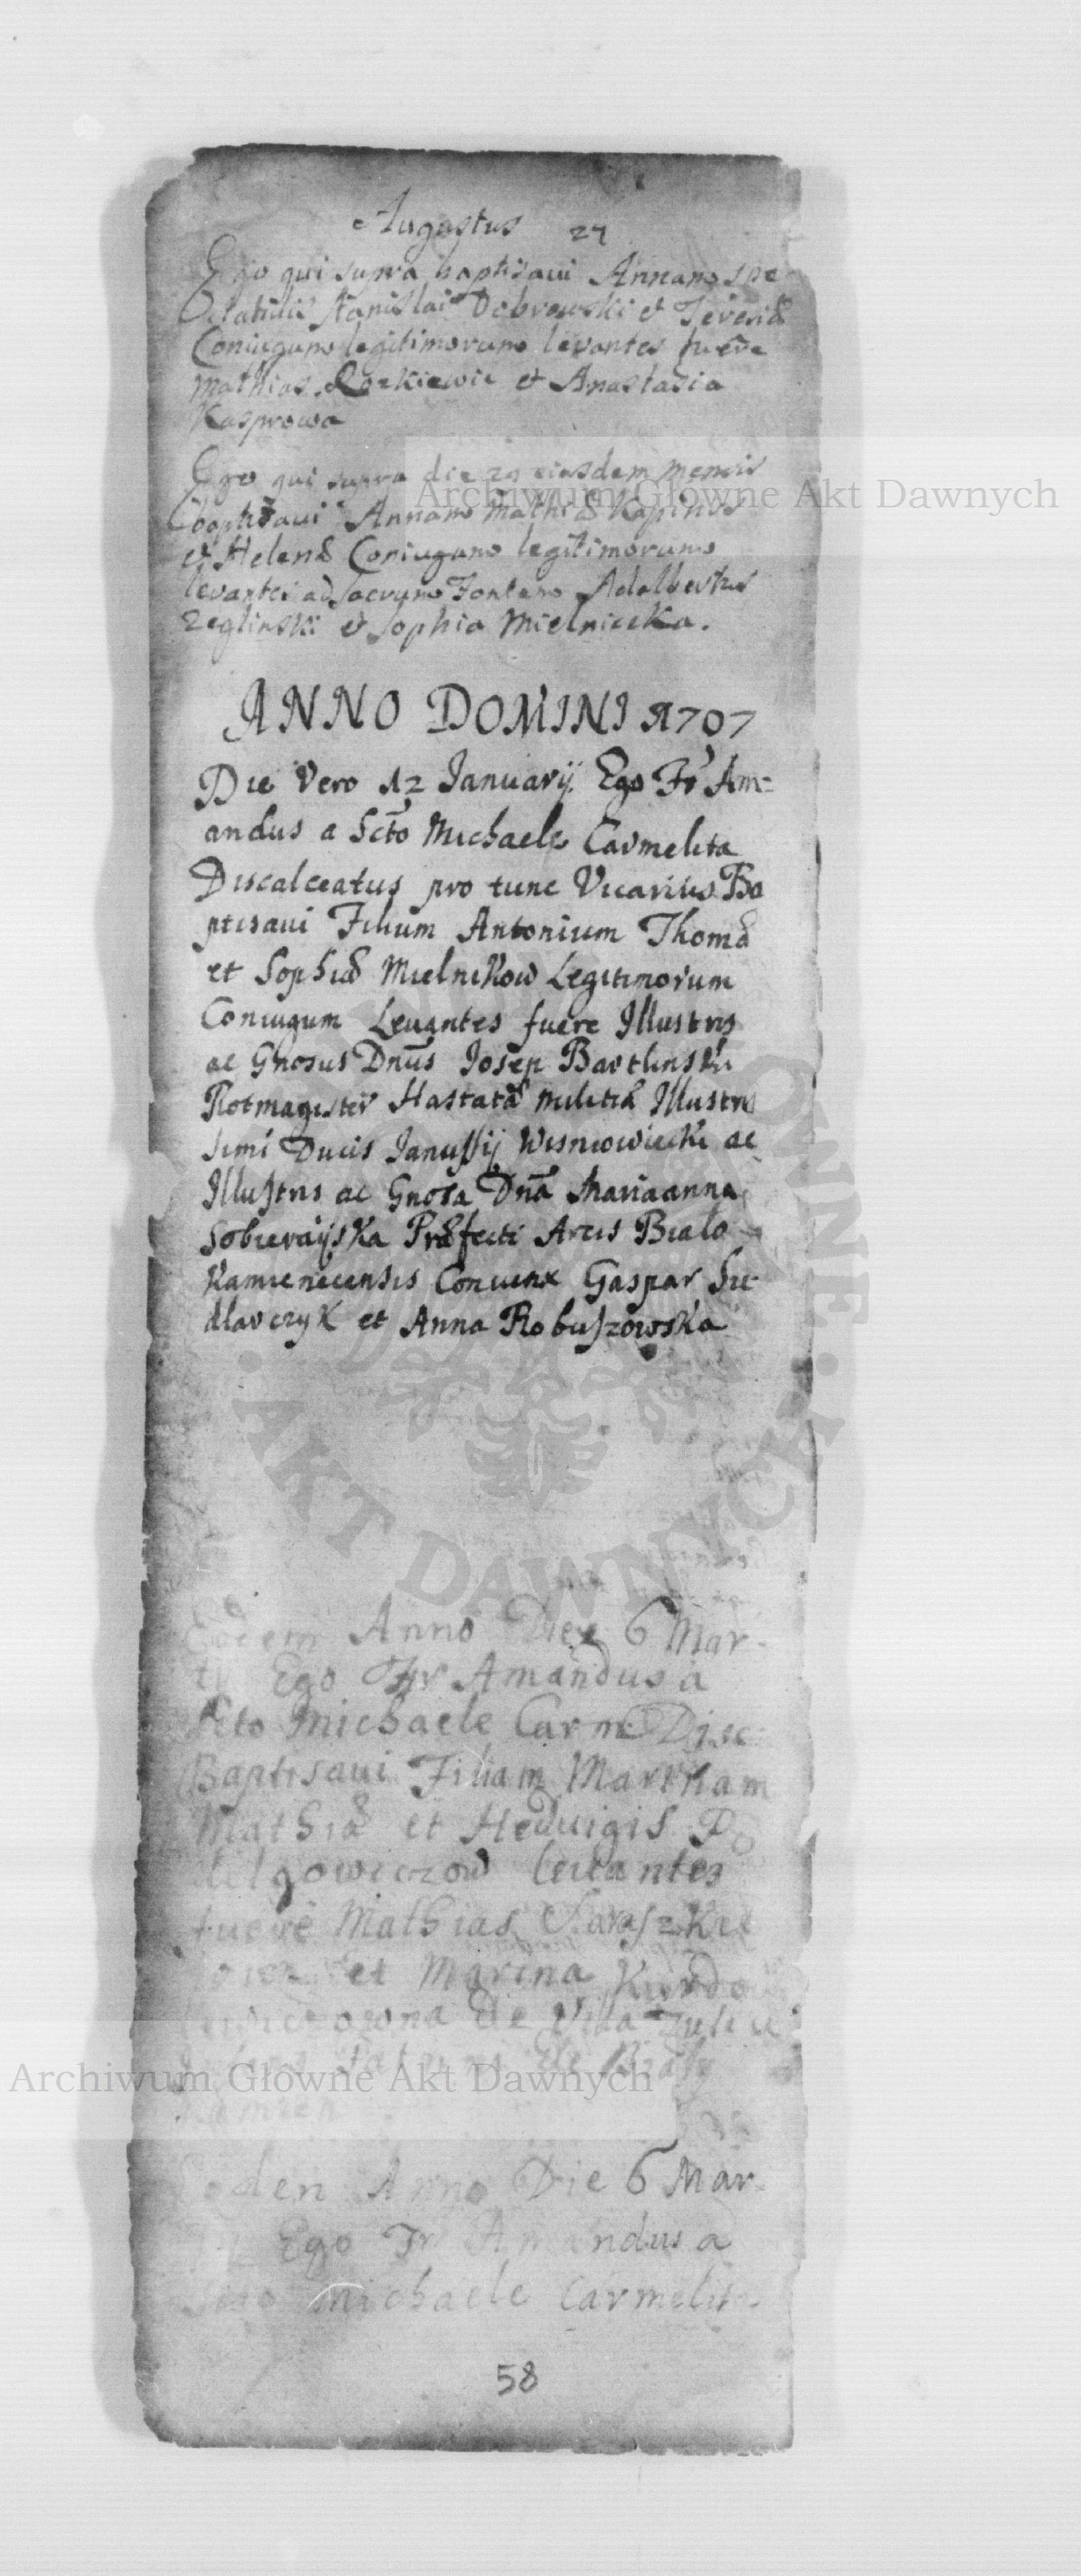 Augustus 27
Ego qui supra baptisavi Annam spe
ctabilis Stanislai Dobrowski et Teresiæ
Coniugum legitimorum levantes fuere
Mathias Roskiewic et Anastasia
Kasprowa
Ego qui supra die 29 eiusdem mensis
baptisavi Annam Mathiæ Kapinos
et Helenæ Coniugum legitimorum
levantes ad sacrum Fontem Adalbertus
Zeglinski et Sophia Mielnicka.
ANNO DOMINI 1707
Die Vero 12 Januarij Ego Fr Am=
andus a Scto Michaele Carmelita
Discalceatus pro tunc Vicarius Ba
ptisavi Filium Antonium Thomæ
et Sophiæ Mielnikow Legitimorum
Coniugum Levantes fuere Illustris
ac Gnosus Dnus Josep Bartlinski
Rotmagister Hastatæ militiæ Illustris
simi Ducis Janussij Wisniowiecki ac
Illustris ac Gnosa Dna Mariaanna
Sobierayska Præfecti Arcis Bialo
Kamenecensis Coniunx Gaspar Sie
dlarczyk et Anna Robuszowska
Eodem Anno Die 6 Mar-
tij Ego Fr Amandus a
Scto Michaele Carm Disc
Baptisavi Filiam Martham
Mathiæ et Heduigis Po
delgowiczow levantes
fuere Mathias Karaszkie
wicz et Marina Kurdo
de Villa
de Bialy
Kamien
Eoden Anno Die 6 Mar-
Ego Fr Amandus a
Scto Michaele Carmelit-
58
Archiwum Główne Akt Dawnych
Archiwum Główne Akt Dawnych
GŁÓWNE • AKT DAWNYCH •